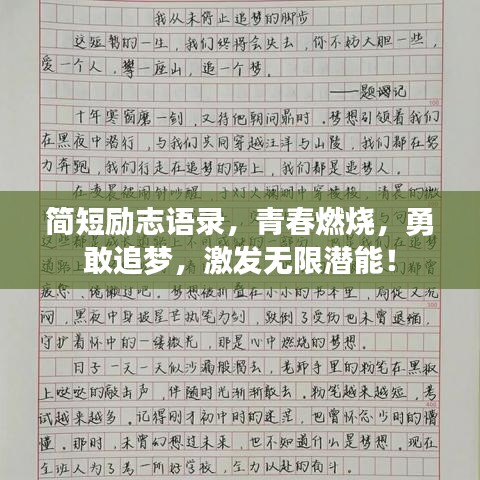 我从未停止追梦的脚步
这短暂的一生，我们终将会失去，你不妨大胆一些，
爱一个人，攀一座山，追一个梦。
——题记
十年寒窗磨一剑，又待他朝问鼎时。梦想引领着我们
在黑夜中潜行，与我们共同穿越汪洋与山陵，我们都在努
力奔跑，我们行走在追梦的路上，我们都是追梦人。
简短励志语录，青春燃烧，勇
敢追梦，激发无限潜能！
闷，黑夜中身披星芒执笔为剑，跌倒了受伤也未曾退缩，
守护着怀中的一缕微光，那是心中燃烧的梦想。
日子一天一天似沙漏般溜去，老师手里的粉笔在黑板
上哒哒的敲击声，伴随时光渐渐散去。粉笔越来越短，考
试越来越多。记得刚才初中时的迷茫，也曾怀念少时的懵
懂。那时，未曾幻想过未来，也不知道什么是梦想。现在
全班人为了考一所好学校，全力以赴的奋斗。